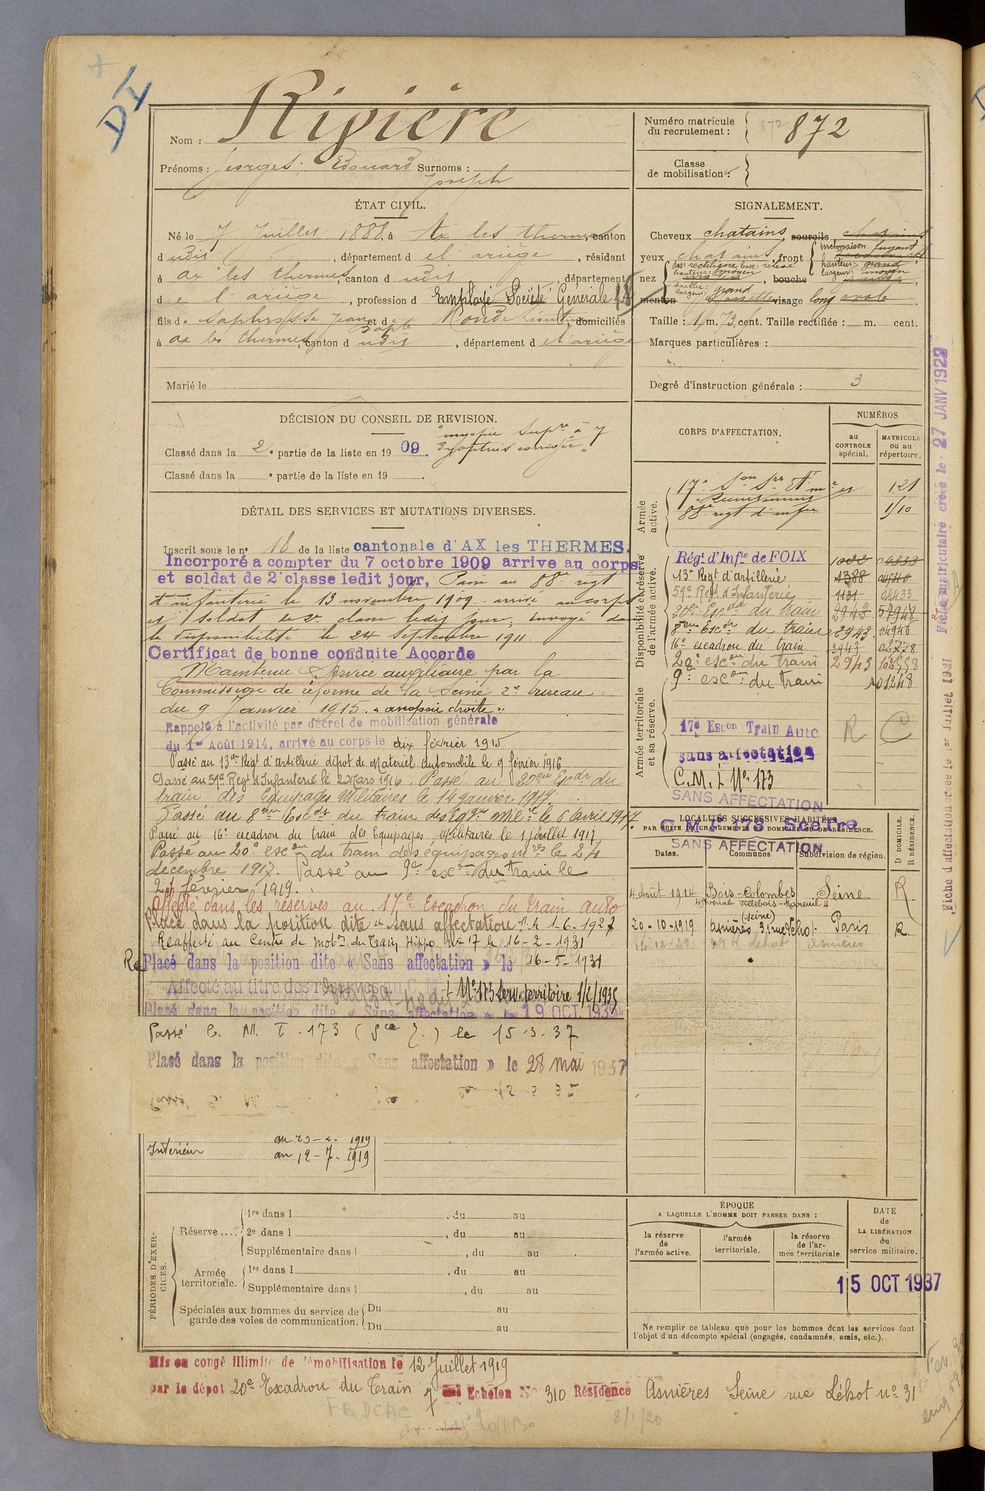 DI
Nom : Rivière
Prénoms : Georges Edouard Surnoms :
Joseph
Numéro matricule
du recrutement : 872 872
Classe
de mobilisation :
ÉTAT CIVIL.
Né le 7 Juillet 1888, à Ax les thermes, canton
d udit, département d el ariège, résidant
à ax les thermes, canton d udit, département
d e l'ariège, profession d Employé Société Générale
fils d Jean et d
domiciliés
à ax les thermes, canton d udit, département d el ariège
Marié le
SIGNALEMENT.
Cheveux chatains, sourcils chatains
yeux chatains, front inclinaison: fuyant
hauteur: grand
largeur: moyen
nez dos: rectiligne base: relevé
hauteur: moyen
largeur: grand
, bouche
menton visage long ovale
Taille : 1 m. 73 cent. Taille rectifiée : m. cent.
Marques particulières :
Degré d'instruction générale : 3
DÉCISION DU CONSEIL DE REVISION.
Classé dans la 2e partie de la liste en 1909
myopie supre à 7
dioptries corrigée
Classé dans la e partie de la liste en 19
DÉTAIL DES SERVICES ET MUTATIONS DIVERSES.
Inscrit sous le n° 18 de la liste cantonale d'AX les THERMES.
Incorporé a compter du 7 octobre 1909 arrive au corps
et soldat de 2e classe ledit jour, Passé au 88e regt
d'infanterie le 13 novembre 1909 arrivé au corps
et soldat de 2e classe ledit jour, envoyé dans
la disponibilité le 24 septembre 1911
Certificat de bonne conduite Accorde
Maintenu Service auxiliaire par la
Commission de réforme de la Seine 2e bureau
du 9 Janvier 1915. "amyopie droite"
Rappelé à l'activité par décret de mobilisation générale
du 1er Août 1914, arrivé au corps le dix février 1915
Passé au 13e Régt d'artillerie dépot de Matériel automobile le 9 février 1916
Passé au 59e Régt d'Infanterie le 2 Mars 1916. Passé au 20eme Escdr du
train des Equipages Militaires le 14 janvier 1917.
Passé au 8eme Escdr du train des Eqges Mres le 6 Avril 1917.
Passé au 16e escadron du train des Equipages Militaires le 1 juillet 1917
Passé au 20e escdr du train des équipages mres le 24
décembre 1917. Passé au 9e escdr du train le
février 1919.
Affecté dans les réserves au 17e Escadron du train auto
Placé dans la position dite « Sans affectation » le 1-6-1927
Réaffecté au Centre de mobon du Train Hippo No 17 le 16-2-1931
Re Placé dans la position dite « Sans affectation » le 16-5-1931
Affecté au titre des réserves au C. M. I. No 173 Serv. territoire
Placé dans la position dite « Sans affectation » le 19 OCT 193
Passé C. M. I. 173 le 15.3.37
Placé dans la position dite « Sans affectation » le 28 mai 1937
Intérieur
au 1919
au 12-7-1919
CORPS D'AFFECTATION.
NUMÉROS
au
CONTROLE
spécial.
MATRICULE
ou au
répertoire.
Armée
active.
17e Son
121
88e regt d'infie 1/10
Disponibilité et réserve
de l'armée active.
Régt d'Infie de FOIX
13e Régt d'artillerie 1388
59e Régt d'Infanterie 1131 04433
20e Escon du train 2943 57948
8eme Escdr du train 2943 04946
16e escadron du train 2943 02778
20e escon du train 2943
9e escon du train
Armée territoriale
et sa réserve.
17e Escon Train Auto R C
sans affectation
C.M.I No 173
SANS AFFECTATION
C M I 173
SANS AFFECTATION
LOCALITÉS SUCCESSIVES HABITÉES
PAR SUITE DE CHANGEMENTS DE DOMICILE OU DE RÉSIDENCE.
Dates. Communes Subdivision de région. D DOMICILE. R RÉSIDENCE.
4 août 1914 Bois-Colombes Seine R.
20-10-1919 Asnières 31 rue Léhot (seine) Paris R.
PÉRIODES D'EXERCICES.
Réserve....
1re dans l , du au
2e dans l , du au
Supplémentaire dans l , du au
Armée
territoriale.
1re dans l , du au
Supplémentaire dans l , du au
Spéciales aux hommes du service de
garde des voies de communication.
Du au
Du au
ÉPOQUE
A LAQUELLE L'HOMME DOIT PASSER DANS :
la réserve
de
l'armée active.
l'armée
territoriale.
la réserve
de l'ar-
mée territoriale
DATE
de
LA LIBÉRATION
du
service militaire.
15 OCT 1937
Ne remplir ce tableau que pour les hommes dont les services font
l'objet d'un décompte spécial (engagés, condamnés, omis, etc.).
Mis en congé illimité de démobilisation le 12 Juillet 1919
par le dépot 20e Escadron du Train Echelon No 310 Résidence Asnières Seine rue Léhot no 31
8/1/20
Fiche matriculaire créée le 27 JANV 1922
Fiche d'affectation créée le 1er Juillet 1921